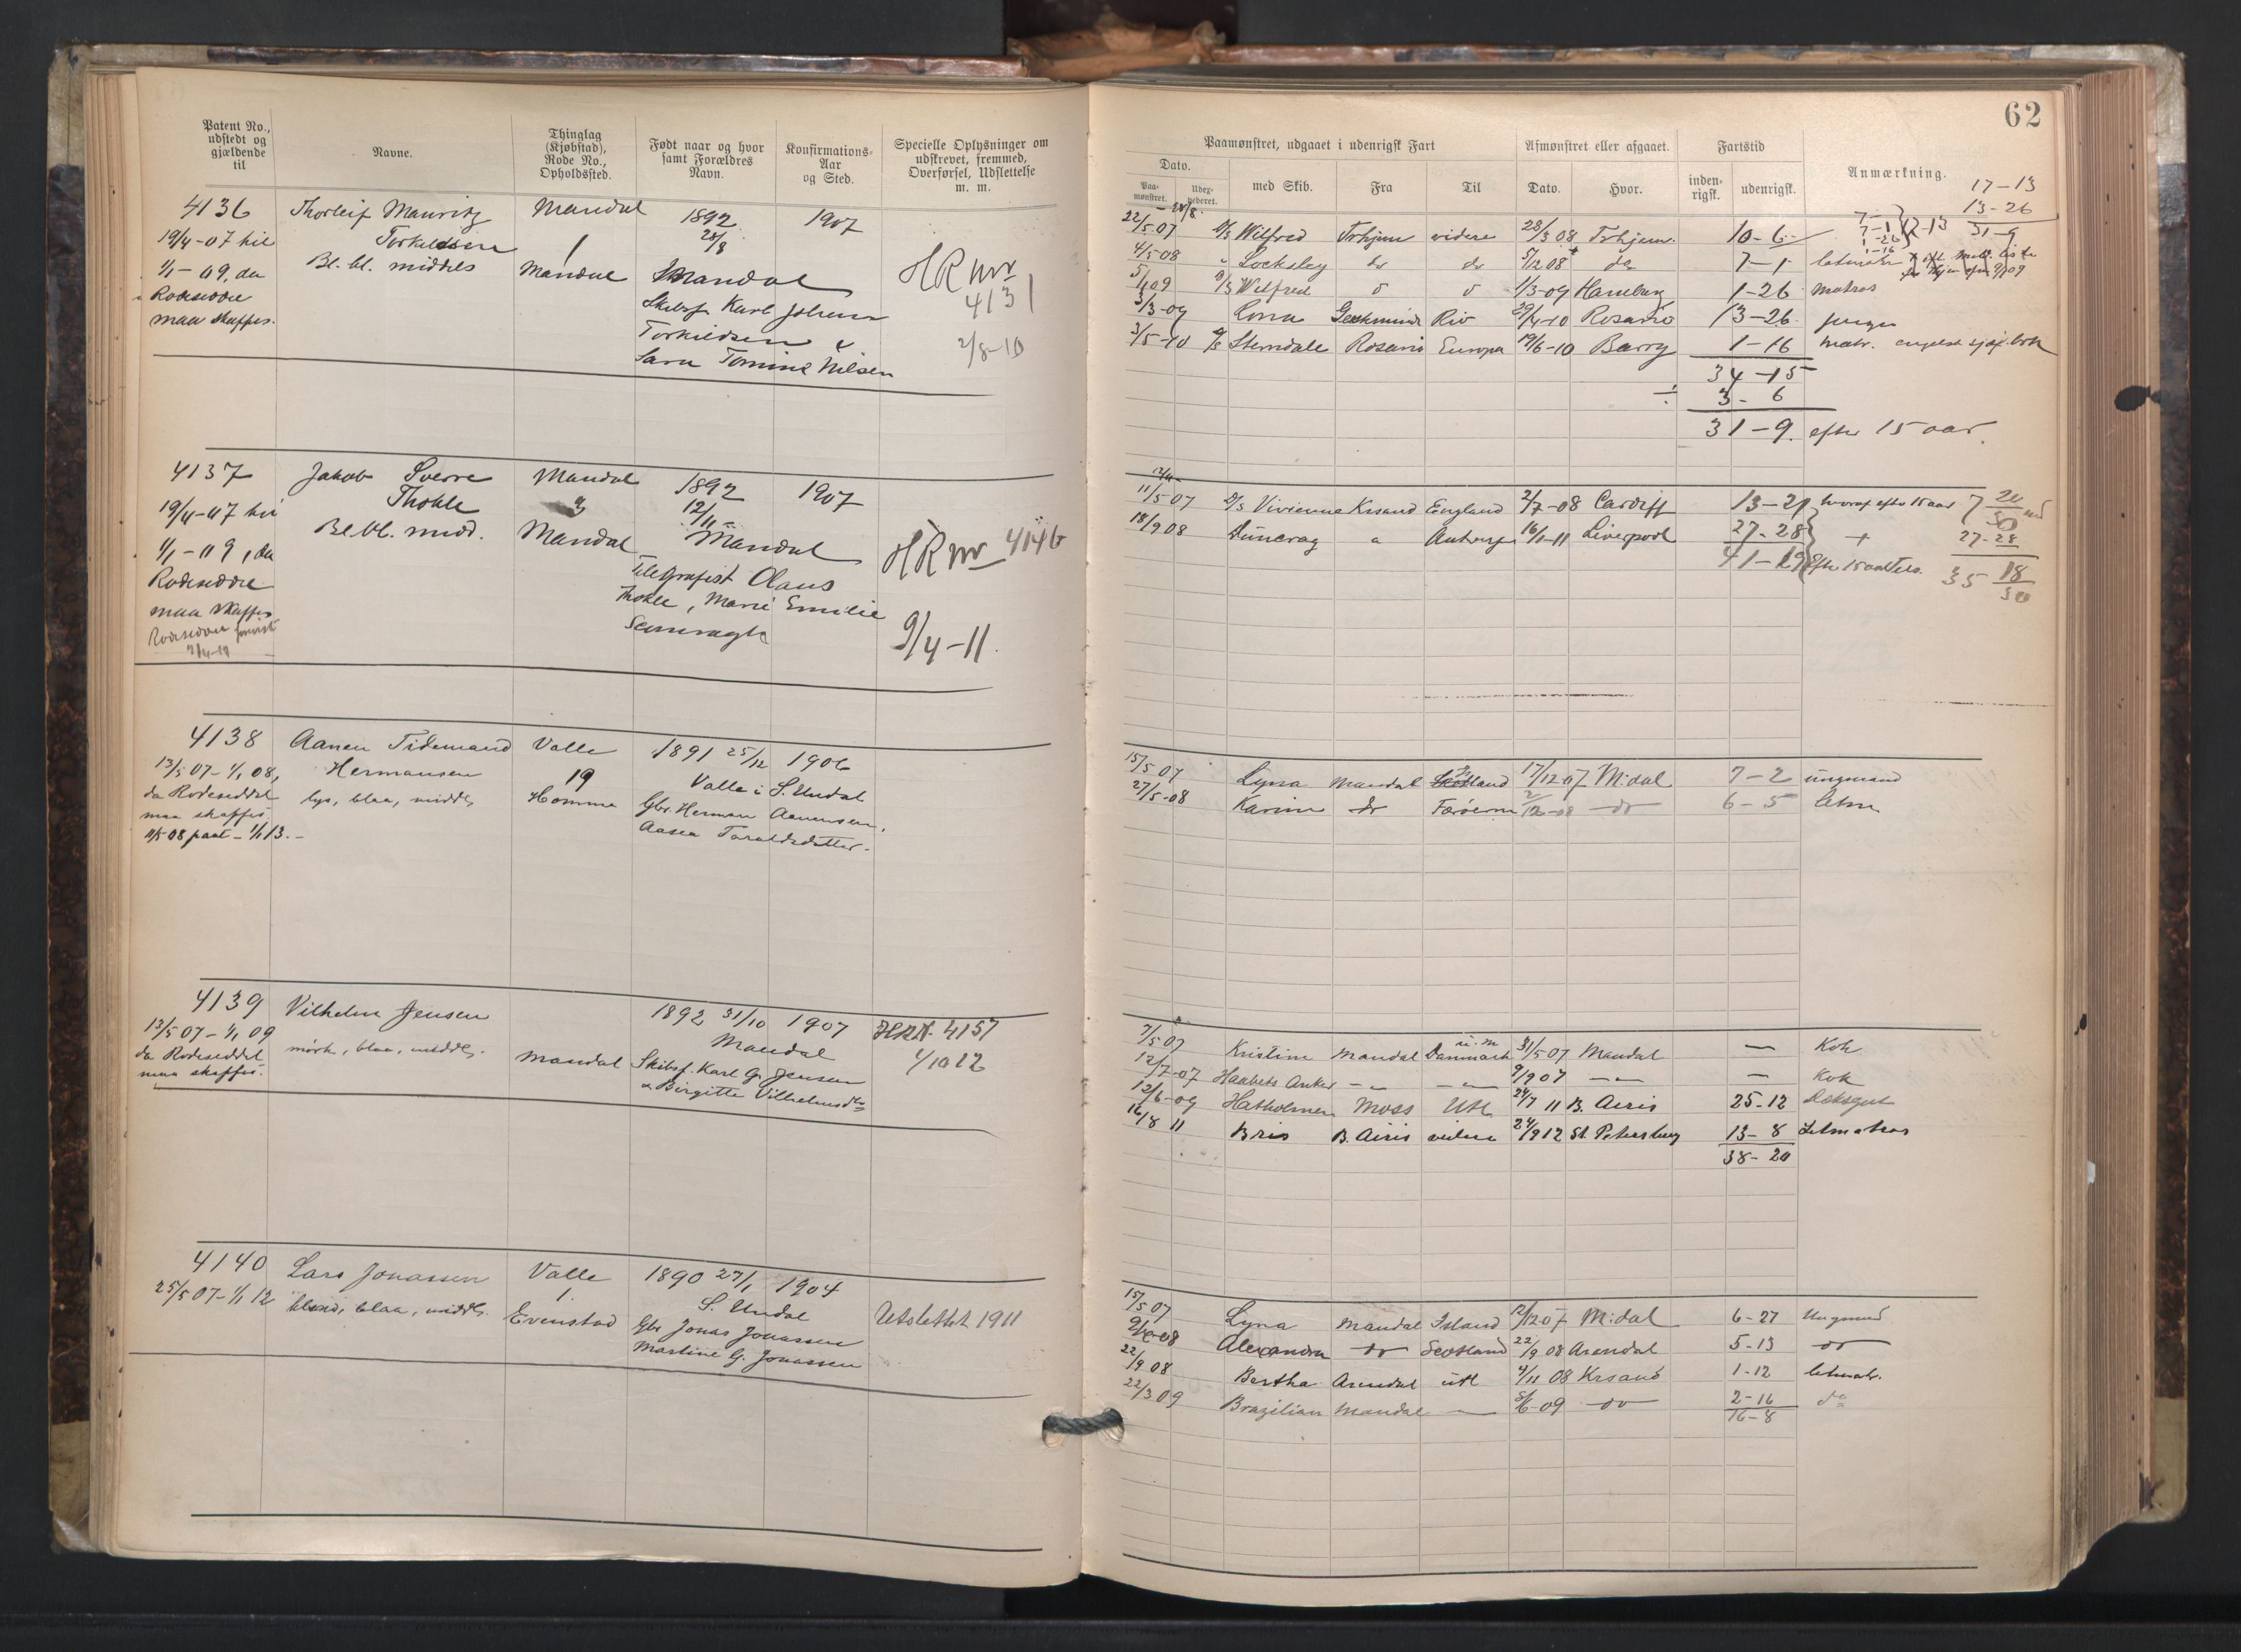 62
Patent No., udstedt og gjældende til
Navne.
Thinglag (Kjøbstad), Rode No., Opholdssted.
Født naar og hvor samt Forældres Navn.
Konfirmations-Aar og Sted.
Specielle Oplysninger om udskrevet, fremmed, Overførsel, Udslettelse m. m.
Paamønstret, udgaaet i udenrigsk Fart
Afmønstret eller afgaaet.
Fartstid
Anmærkning.
Dato.
Paa-mønstret.
med Skib.
Fra
Til
Dato.
Hvor.
inden-rigsk.
udenrigsk.
4136 Thorleif Mauritz Mandal 1892 1907
Torkildsen 1 28/8
19/4-07 til
Bl. bl. middels Mandal Mandal HR nr
1/1-09, da 4131
Rodeseddel Skibsf. Karl Johan
maa skaffes. Torkildsen &
2/8-10
Sara Tomine Nilsen
17-13
13-26
31-9
22/5-07 D/S Wilfred Trhjem videre 28/3 08 Trhjem. 10-6
4/5-08 " Locksley do do 5/12 08 do 7-1
5/1 09 Wilfred 1/3-09 Hamburg 1-26 Matros
3/3-09 Rio 29/4-10 Rosario 13-26
3/5-10 Sterndale Rosario Europa 19/6-10 Barry 1-16 Matr.
34-15
÷ 3-6
31-9. efter 15 aar.
4137 Jakob Sverre Mandal 1892 1907
Thokle 3 12/11
19/4-07 til
Bl. bl. midd. Mandal Mandal HR nr 4146
1/1-09, da
Rodeseddel Telegrafist Olaus
Thokle, Marie Emilie
maa skaffes
9/4-11.
11/5 07 D/S Vivienne Krsand England 2/7-08 Cardiff 13-21 hvoraf efter 15 aar
18/9 08 Duncrag Antwerp 16/1-11 Liverpool 27-28
41-19
27-28
35 18/30
4138 Aanen Tidemand Valle 1891 25/12 1906
13/5 07-1/1 08, Hermansen 19 Valle i S. Undal
da Rodeseddel lys, blaa, middls. Homme Gbr. Herman Aanensen,
maa skaffes. Aasea Taraldsdatter.
11/5 08 paat - 1/1 13.
15/5 07 Lyna Mandal Island 17/12 07 M:dal 7-2 ungmand
27/5-08 Karine do Færøerne do 6-5 letm
4139 Vilhelm Jensen 1892 31/10 1907 HRN. 4157
13/5 07-1/1 09 Mandal 4/10 12
da Rodeseddel mørk, blaa, middls. Mandal Skibsf. Karl G. Jensen
maa skaffes. & Birgitte Vilhelmsdtr
7/5 07 Kristine Mandal Danmark 31/5 07 Mandal — Kok
12/7-07 Haabets Anker 9/9 07 — Kok
12/6-09 Hatholmen Moss Utl. 24/7 11 B. Airis 25-12 Deksgut
16/8 11 Bris B. Airis videre 24/9 12 St. Petersburg 13-8 Letmatros
38-20
4140 Lars Jonassen Valle 1890 27/1 1904
25/5 07-1/1 12 blond, blaa, middls. 1. S. Undal
Evenstad Gbr Jonas Jonassen Utslettet 1911
Martine G. Jonassen
15/5 07 Lyna Mandal Island 12/12 07 M:dal 6-27 Ungmnd
Alexandra do Scotland 22/9 08 Arendal 5-13 do
22/9 08 Bertha Arendal utl 4/11 08 Krsand 1-12 letmatr.
22/3 09 Brazilian Mandal — do 2-16 do
16-8